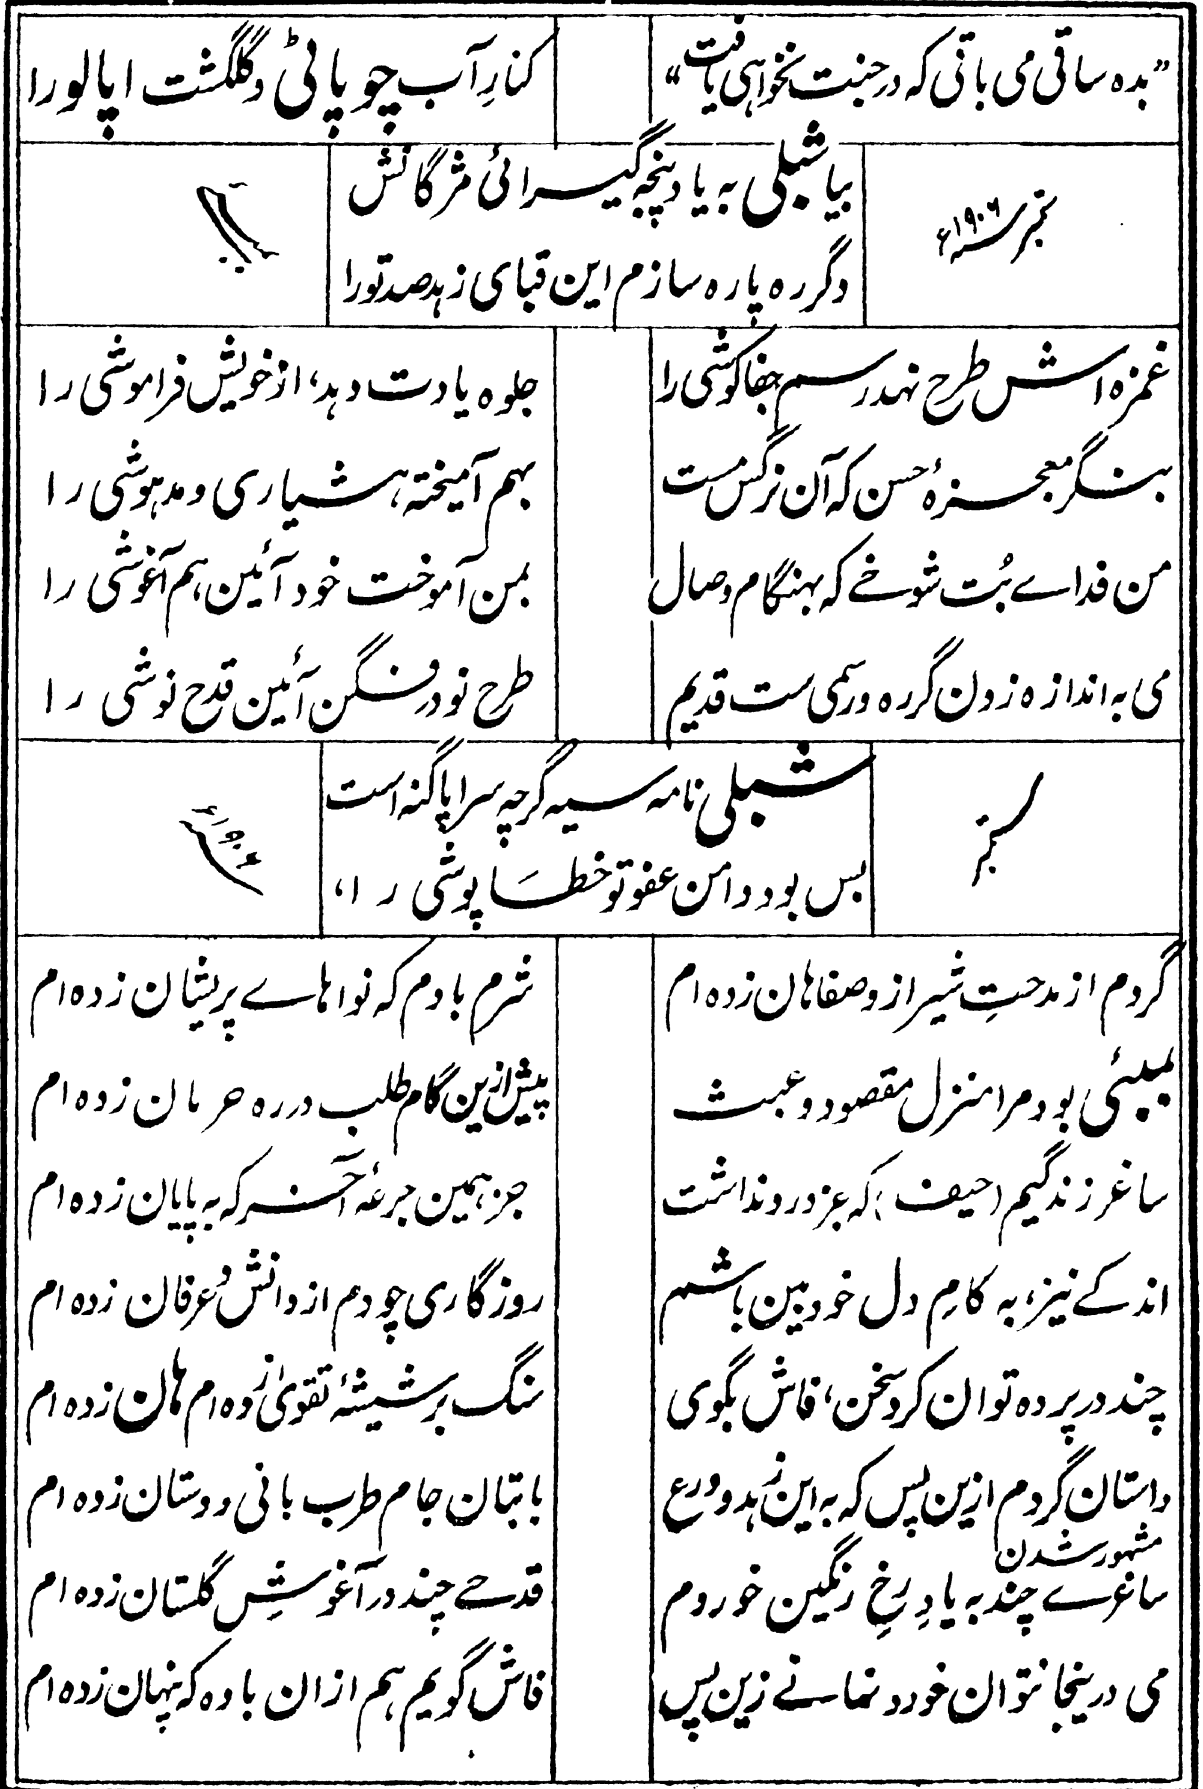 ”بده ساقی می باقی که در جنت نخواهی یافت“ کنارِ آب چوپاٹی و گلگشت اپالو را
بیا شبلی به یاد پنجه گیرائی مژگانش
ستمبر سنه ۱۹۰۶ء
دگر ره پاره سازم این قبای زهد صد تو را
غمزه اش طرح نهد رسم جفا کوشی را جلوه یادت دهد، از خویش فراموشی را
بنگر معجزۂ حسن که آن نرگس مست بهم آمیخته، هشیاری و مدهوشی را
من فداے بُت شوخے که بهنگام وصال بمن آموخت خود آئین هم آغوشی را
می به اندازه زدن گر ره و رسمی ست قدیم طرح نو در فگن آئین قدح نوشی را
شبلی نامه سیه گرچه سراپا گنه است
ستمبر
سنه ۱۹۰۶ء
بس بود دامن عفو تو خطا پوشی را،
گردم از مدحتِ شیراز و صفاهان زده ام شرم بادم که نواهاے پریشان زده ام
بمبئی بود مرا منزل مقصود و عبث پیش ازین گام طلب در ره حرمان زده ام
ساغر زندگیم (حیف) که جز درد نداشت جز همین جرعۂ آخر که به پایان زده ام
اندکے نیز، به کامِ دل خود بین باشم روزگاری چو دم از دانش و عرفان زده ام
چند در پرده توان کرد سخن، فاش بگوی سنگ بر شیشۂ تقویٰ زده ام هان زده ام
داستان گردم ازین پس که به این زهد و ورع با بتان جام طرب بانی و دستان زده ام
مشهور شدن
ساغرے چند به یادِ رخِ رنگین خوردم قدحے چند در آغوشِ گلستان زده ام
می درینجا نتوان خورد نمانے زین پس فاش گویم هم ازان باده که پنهان زده ام